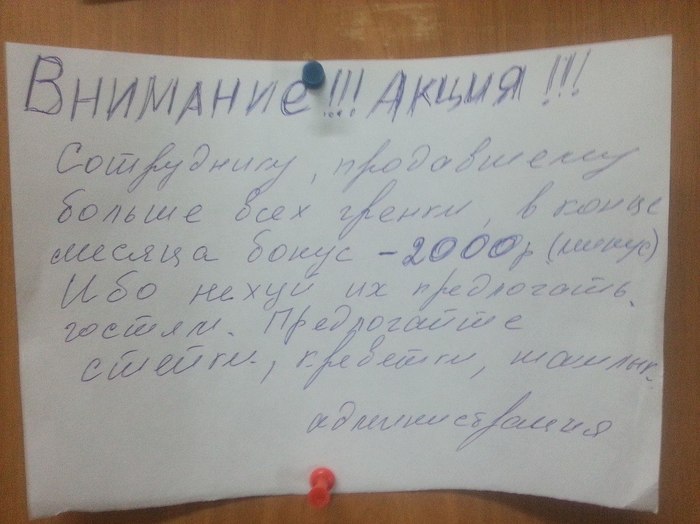 Внимание!!! Акция!!!
Сотруднику, продавшему
больше всех гренки, в конце
месяца бонус -2000р (минус)
Ибо нехуй их предлогать
гостям. Предлогайте
стейки, креветки, шашлык.
администрация